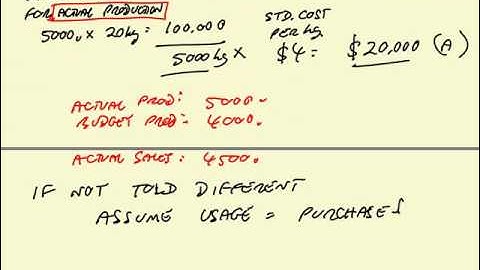 FOR ACTUAL PRODUCTION
5000u X 20kg = 100,000
5000kg X
STD. COST
PER kg
$4 = $20,000 (A)
ACTUAL PROD: 5000u
BUDGET PROD: 4000u
ACTUAL SALES: 4500u
IF NOT TOLD DIFFERENT
ASSUME USAGE = PURCHASES